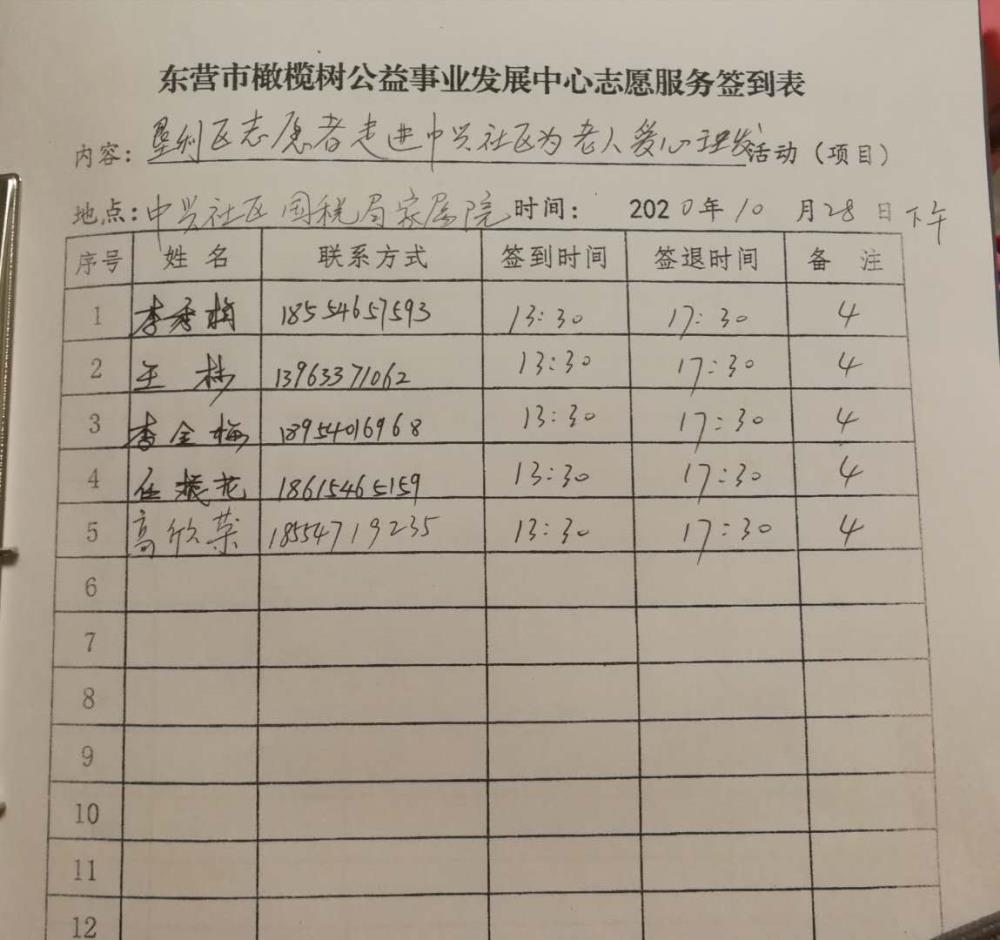 东营市橄榄树公益事业发展中心志愿服务签到表
内容：垦利区志愿者走进中兴社区为老人爱心理发活动（项目）
地点：中兴社区国税局家属院 时间： 2020年10月28日下午
序号 姓名 联系方式 签到时间 签退时间 备注
1 李秀梅 18554657593 13:30 17:30 4
2 王栋 13963371062 13:30 17:30 4
3 李金梅 18954016968 13:30 17:30 4
4 任 花 18615465159 13:30 17:30 4
5 高欣荣 18554719235 13:30 17:30 4
6
7
8
9
10
11
12